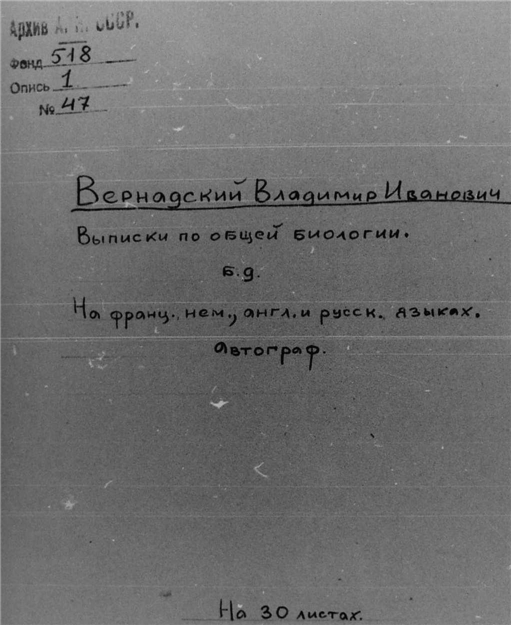 Архив А. Н. СССР.
Фонд 518
Опись 1
№ 47
Вернадский Владимир Иванович
Выписки по общей биологии.
б.д.
На франц., нем., англ. и русск. языках.
Автограф.
На 30 листах.